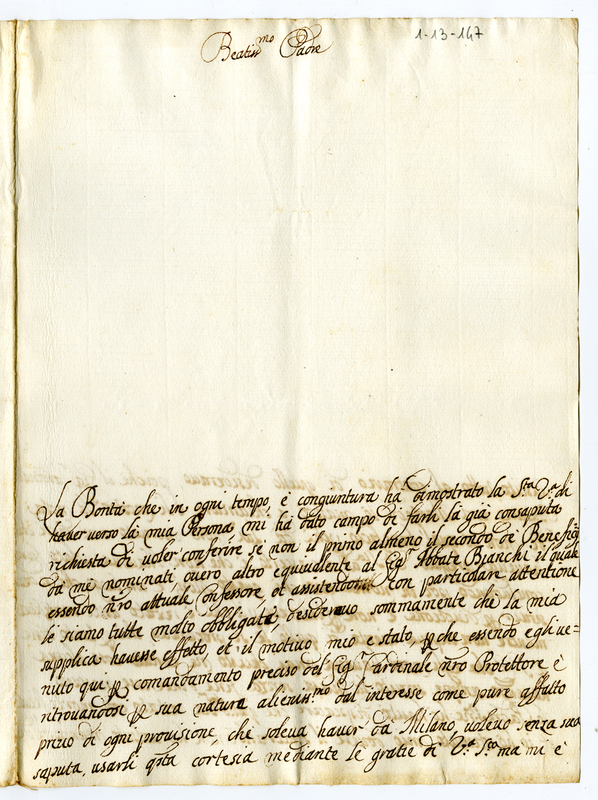 1-13-147
Beatiss.mo Padre
La Bontà che in ogni tempo, è congiuntura hà dimostrato la S.ta V.a di
haver verso la mia Persona, mi hà dato campo di farli la già consaputa
richiesta di voler conferire se non il primo almeno il secondo dè Beneficij
dà mè nominati, overo altro equivalente al Sig.r Abbate Bianchi il quale
essendo nr̃o attuale Confessore, et assistendoci con particolare attentione
le siamo tutte molto obbligate, desideravo sommamente chè la mia
supplica havesse effetto, et il motivo mio è stato, ꝑche essendo egli ve=
nuto qui ꝑ comandamento preciso del Sig.r Cardinale nr̃o Protettore è
ritrovandosi ꝑ sua natura alieniss.mo dal interesse come pure affatto
privo di ogni provisione, chè soleva haver dà Milano, volevo senza sua
saputa, usarli q̃sta cortesia mediante le gratie di V.a S.ta mà mi è